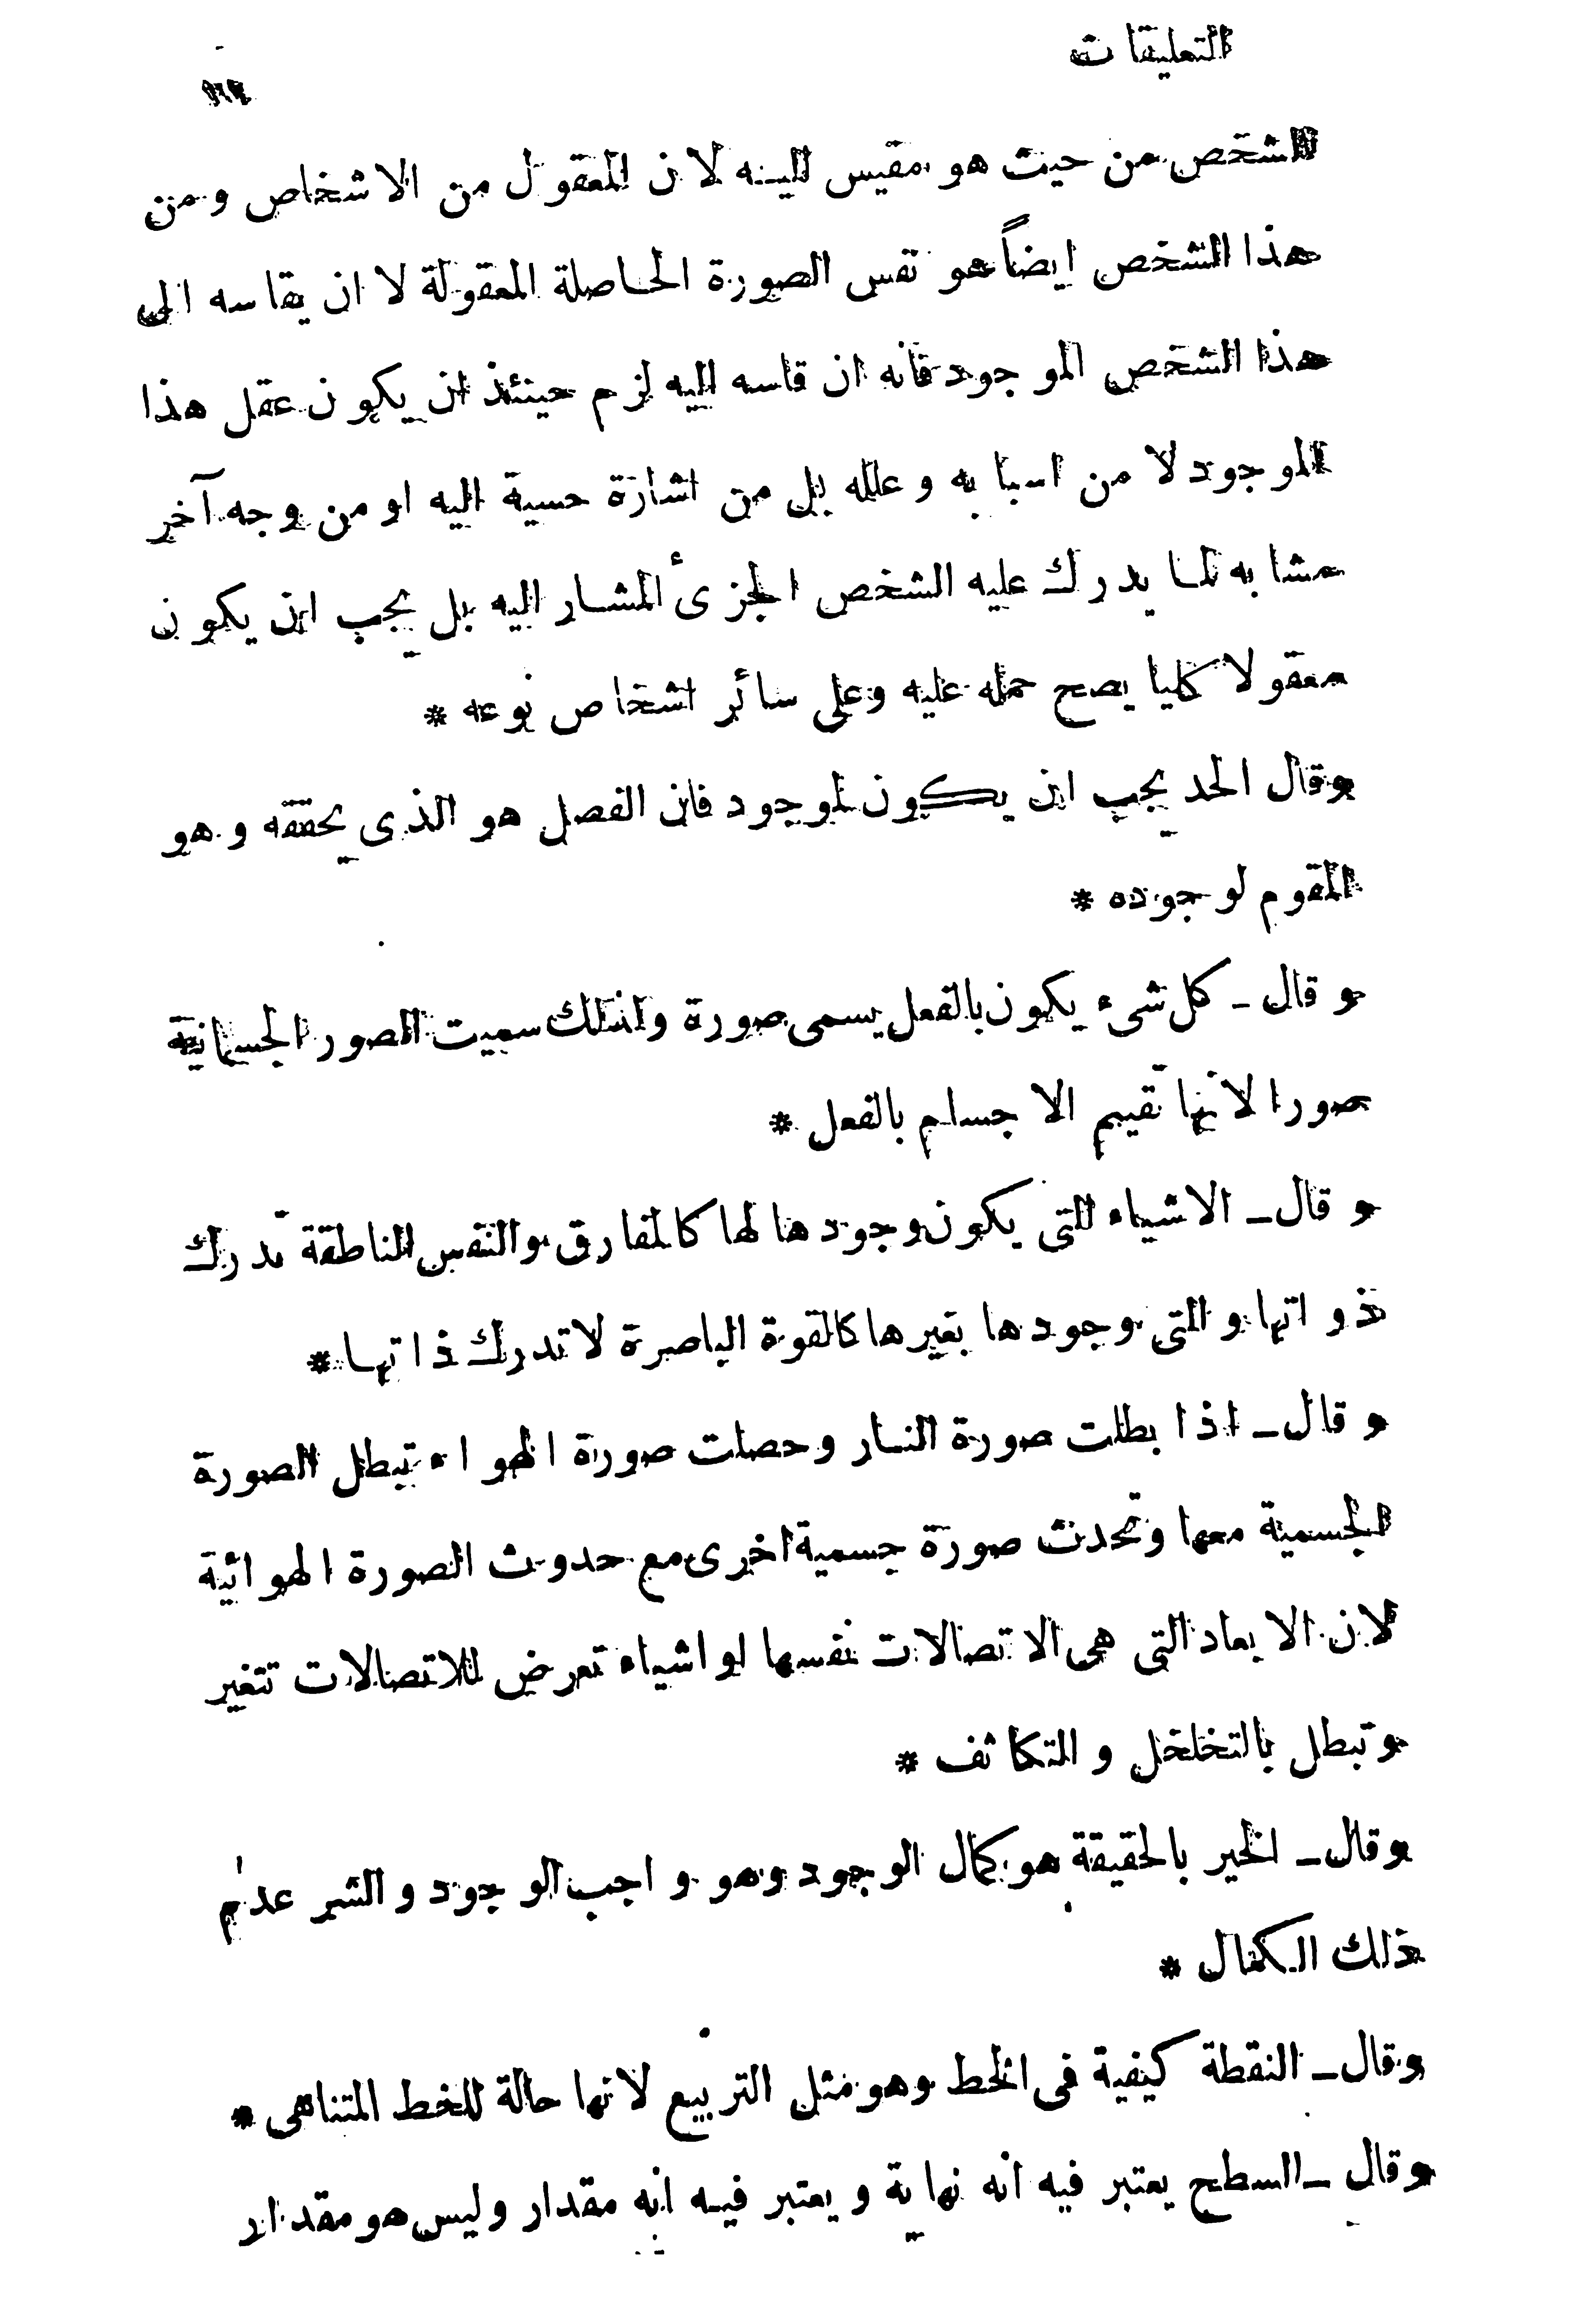 التعليقات
الشخص من حيث هو مقيس اليه لان المعقول من الاشخاص ومن
هذا الشخص ايضاً هو نفس الصورة الحاصلة المعقولة لا ان يقاسه الى
هذا الشخص الموجود فانه ان قاسه اليه لزم حينئذ ان يكون عقل هذا
الموجود لا من اسبابه وعلله بل من اشارة حسية اليه او من وجه آخر
مشابه لما يدرك عليه الشخص الجزئ المشار اليه بل يجب ان يكون
معقولا كليا يصح حمله عليه وعلى سائر اشخاص نوعه *
وقال الحد يجب ان يكون لموجود فان الفصل هو الذى يحققه وهو
المقوم لوجوده *
وقال ـ كل شىء يكون بالفعل يسمى صورة ولذلك سميت الصور الجسمانية
صورا لانها تقيم الاجسام بالفعل *
وقال ـ الاشياء التى يكون وجودها لها كالمفارق والنفس الناطقة تدرك
ذواتها والتى وجودها بغيرها كالقوة الباصرة لا تدرك ذاتها *
وقال ـ اذا بطلت صورة النار وحصلت صورة الهواء تبطل الصورة
الجسمية معها وتحدث صورة جسمية اخرى مع حدوث الصورة الهوائية
لان الابعاد التى هى الاتصالات نفسها او اشياء تعرض للاتصالات تتغير
وتبطل بالتخلخل والتكاثف *
وقال ـ الخير بالحقيقة هو كمال الوجود وهو واجب الوجود والشر عدم
ذلك الكمال *
وقال ـ النقطة كيفية فى الخط وهو مثل التربيع لانها حالة للخط المتناهى *
وقال ـ السطح يعتبر فيه انه نهاية ويعتبر فيه انه مقدار وليس هو مقدار